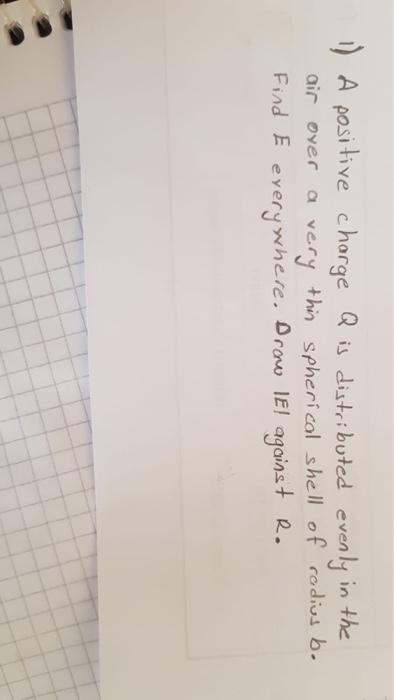 1) A positive charge Q is distributed evenly in the
air over a very thin spherical shell of radius b.
Find E everywhere. Draw |E| against R.